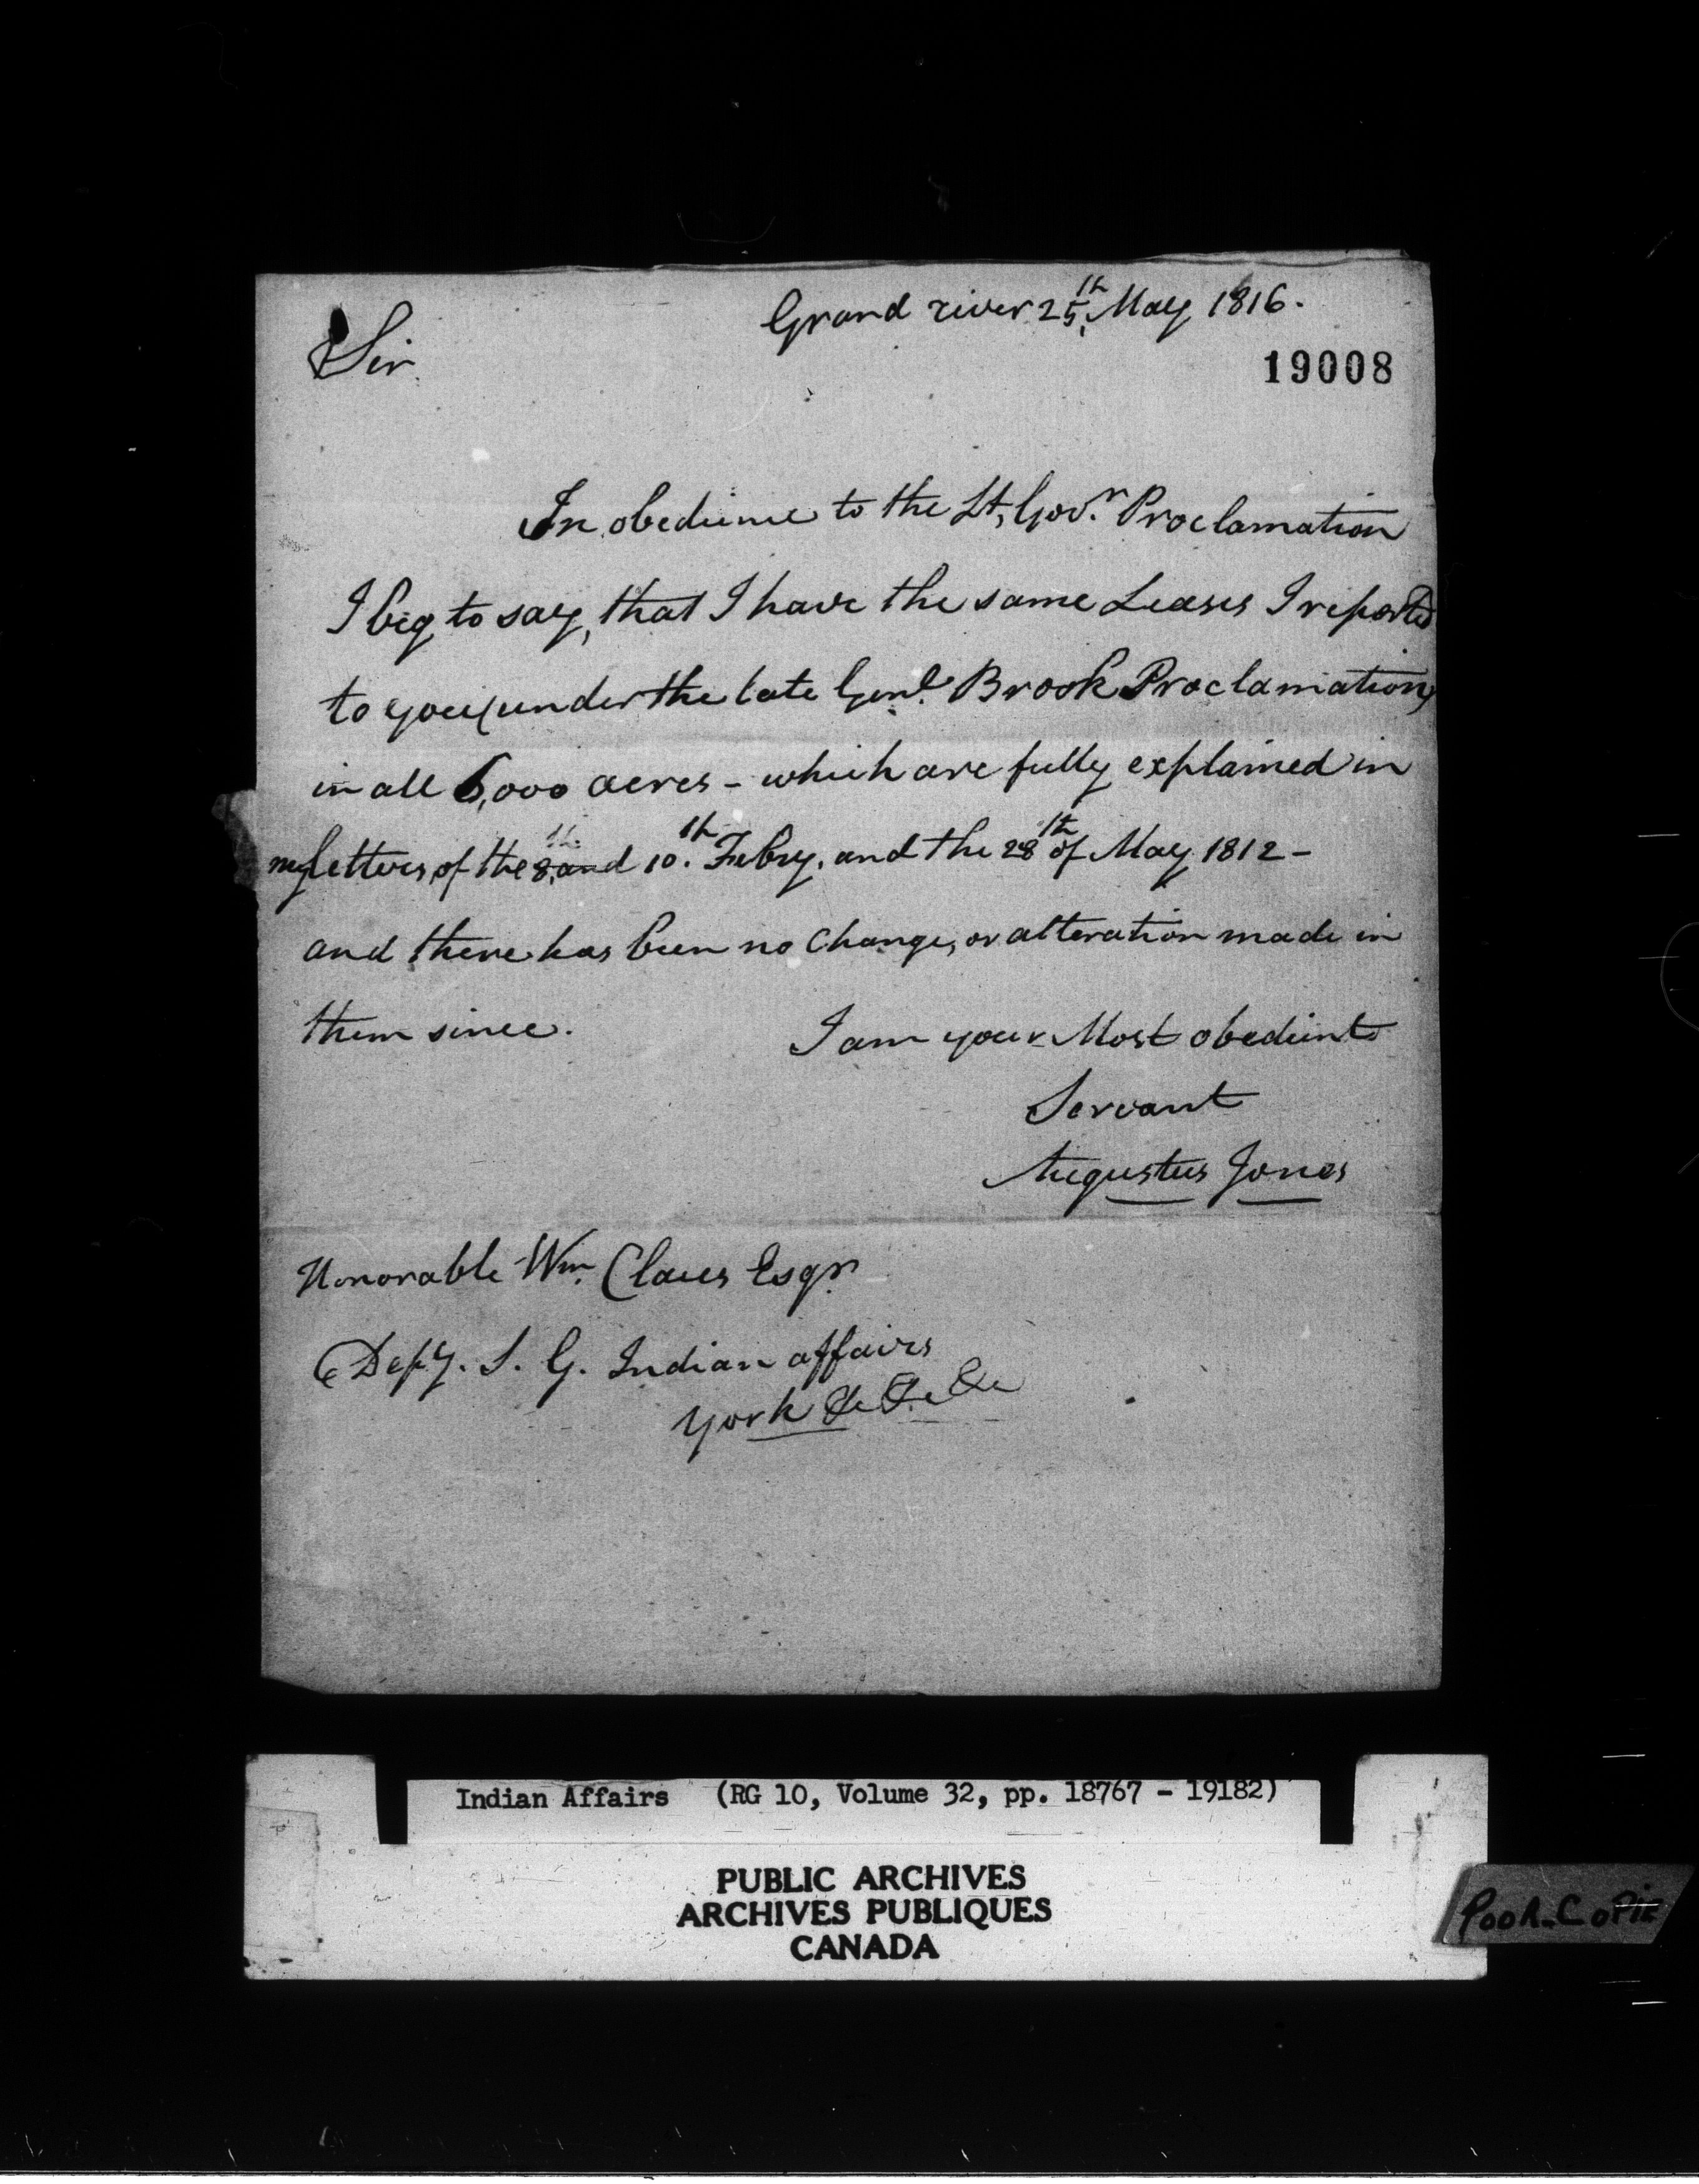 Grand river 25th, May 1816.
Sir
19008
In obedience to the Lt, Govr. Proclamation
I beg to say, that I have the same Leases I reported
to you under the late Genl. Brook Proclamation,
in all 6,000 acres - which are fully explained in
my letters, of the 8,th and 10.th Febry. and the 28th of May 1812 -
and there has been no change, or alteration made in
them since.
I am your Most obedient
Servant
Augustus Jones
Honorable Wm. Claus Esqr.
Depy. S. G. Indian affairs
York &c &c &c
Indian Affairs (RG 10, Volume 32, pp. 18767 - 19182)
PUBLIC ARCHIVES
ARCHIVES PUBLIQUES
CANADA
POOR COPIE